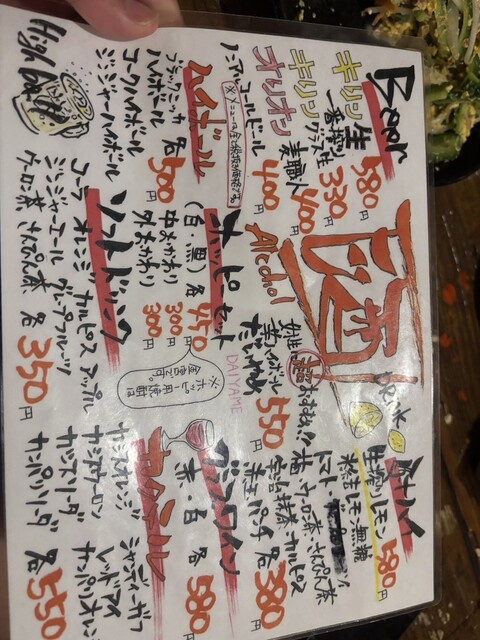 Beer
キリン 生 580円
一番搾り
キリン グラス生 350円
オリオン 麦職人 400円
ノンアルコールビール 400円
※メニューは全て税抜価格です
ハイボール
ブラックニッカ
ハイボール
コークハイボール
ジンジャーハイボール
各500円
High ball
酒
Alcohol
Drink
ホッピーセット
(白・黒) 各450円
中おかわり 300円
外おかわり 300円
※ホッピー用焼酎は
金宮です。
女性超おすすめ!!
茶ハイボール
だいやめ 550円
DAIYAME
ソフトドリンク
コーラ オレンジ カルピス アップル
ジンジャーエール グレープフルーツ
ウーロン茶 さんぴん茶 各350円
サワー
生搾りレモン 580円
氷結レモン無糖
トマト
梅・ウーロン茶・さんぴん茶
宇治抹茶・カルピス
赤玉パンチ 各380円
グラスワイン
赤・白 各580円
カクテル
カシスオレンジ
カシスウーロン
カシスソーダ
カンパリソーダ
シャンディーガフ
レッドアイ
カンパリオレンジ
各550円